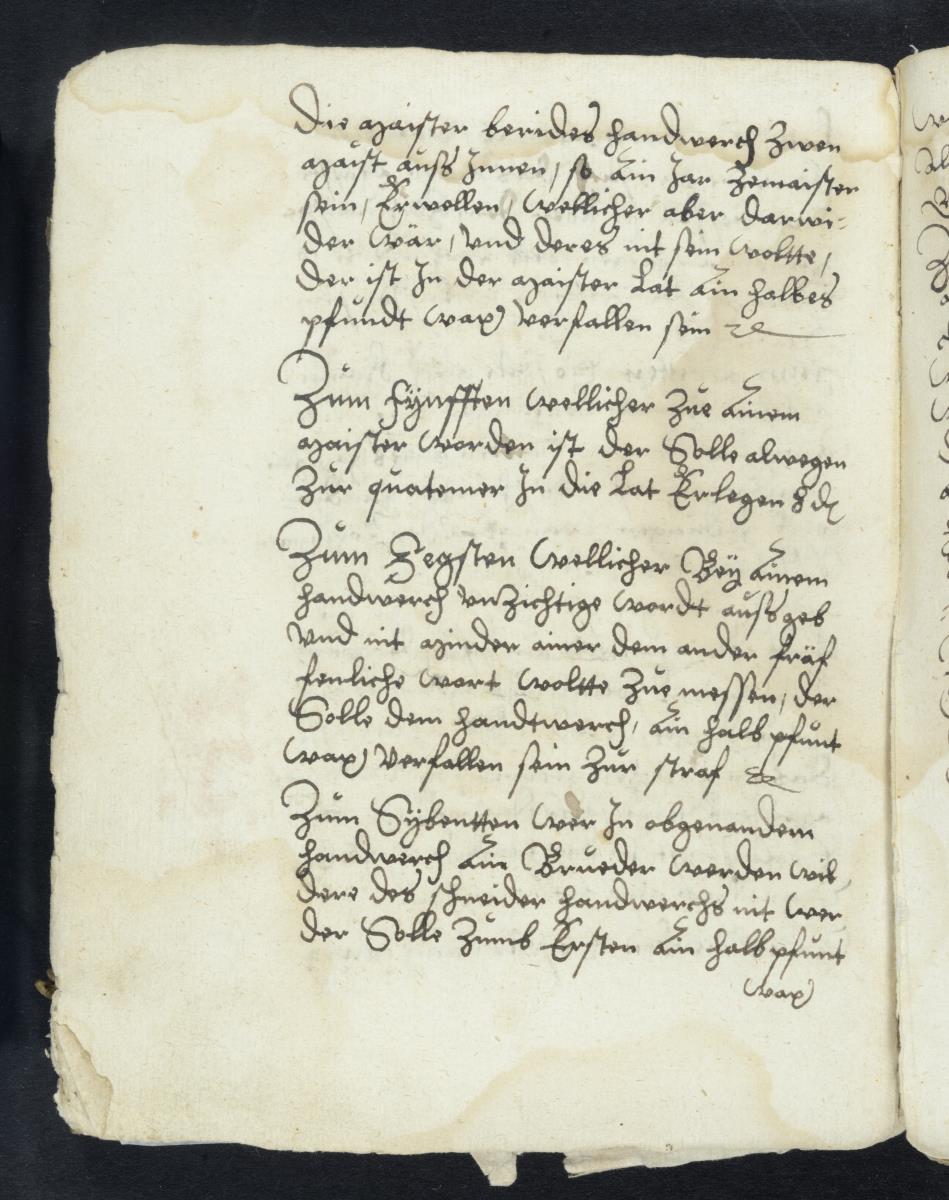 Die Maister berides handwerch Zwen
Maist auss Innen, so Ain Jar Zemaister
sein, Erwellen, Wellicher aber darwi-
der Wär, Vnd deres nit sein Woltte,
der ist In der Maister Lat Ain halbes
pfundt Wax Verfallen sein
Zum Fÿnfften Wellicher Zue Ainem
Maister Worden ist der Solle alwegen
Zur quatemer In die Lat Erlegen 8 d
Zum Segsten Wellicher Beÿ Ainem
handwerch VnZichtige Wordt aussgeb
Vnd nit Minder ainer dem ander fräf
fenliche Wort Woltte Zue messen, der
Solle dem handtwerch, Ain halb pfunt
Wax Verfallen sein Zur straf
Zum Sÿbentten Wer In obgenandem
handwerch Ain Brueder Werden Wil
dere des schneider handwerchs nit Wer
der Solle Zumb Ersten Ain halb pfunt
Wax